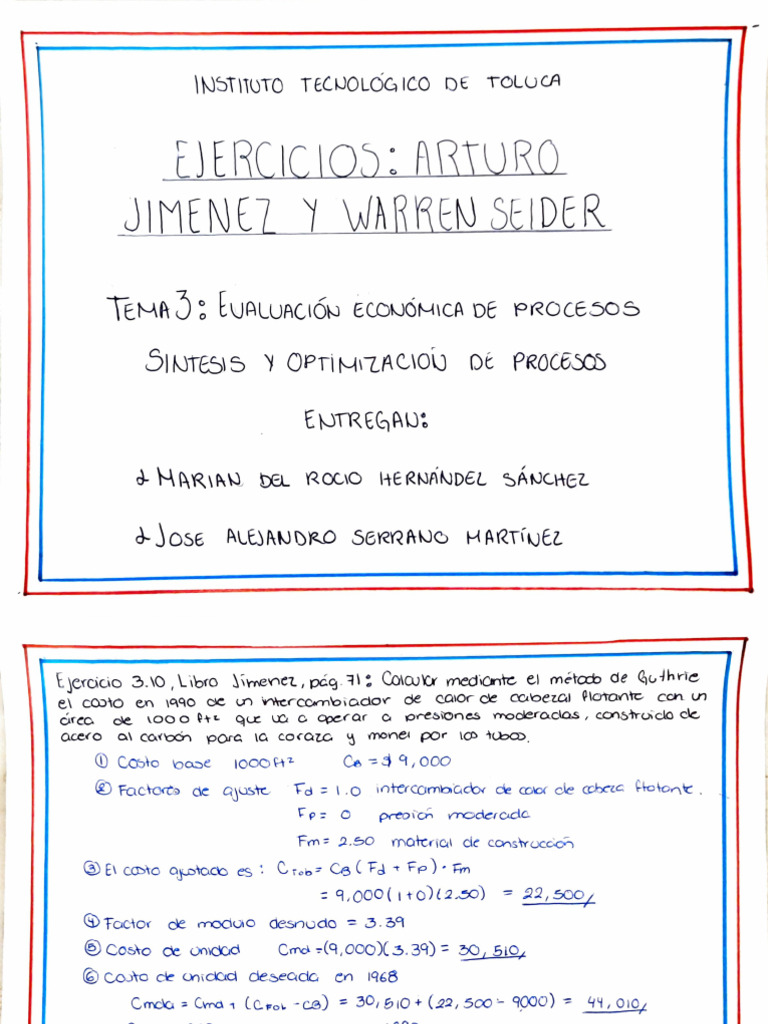 INSTITUTO TECNOLÓGICO DE TOLUCA
EJERCICIOS: ARTURO
JIMENEZ Y WARREN SEIDER
TEMA 3: EVALUACIÓN ECONÓMICA DE PROCESOS
SINTESIS Y OPTIMIZACIÓN DE PROCESOS
ENTREGAN:
MARIAN DEL ROCIO HERNÁNDEL SÁNCHEZ
JOSE ALEJANDRO SERRANO MARTÍNEZ
Ejercicio 3.10, Libro Jimenez, pág. 71: Calcular mediante el método de Guthrie
el costo en 1990 de un intercambiador de calor de cabezal flotante con un
área de 1000 ft² que va a operar a presiones moderadas, construido de
acero al carbón para la coraza y monel por los tubos.
① Costo base 1000 ft² CB = $ 9,000
② Factores de ajuste Fd = 1.0 intercambiador de calor de cabeza flotante.
Fp = 0 presión moderada
Fm = 2.50 material de construcción
③ El costo ajustado es: CFob = CB (Fd + Fp) · Fm
= 9,000 (1+0) (2.50) = 22,500/
④ Factor de modulo desnudo = 3.39
⑤ Costo de unidad Cmd = (9,000)(3.39) = 30,510/
⑥ Costo de unidad deseada en 1968
Cmda = Cmd + (CFOb - CB) = 30,510 + (22,500 - 9000) = 44,010/